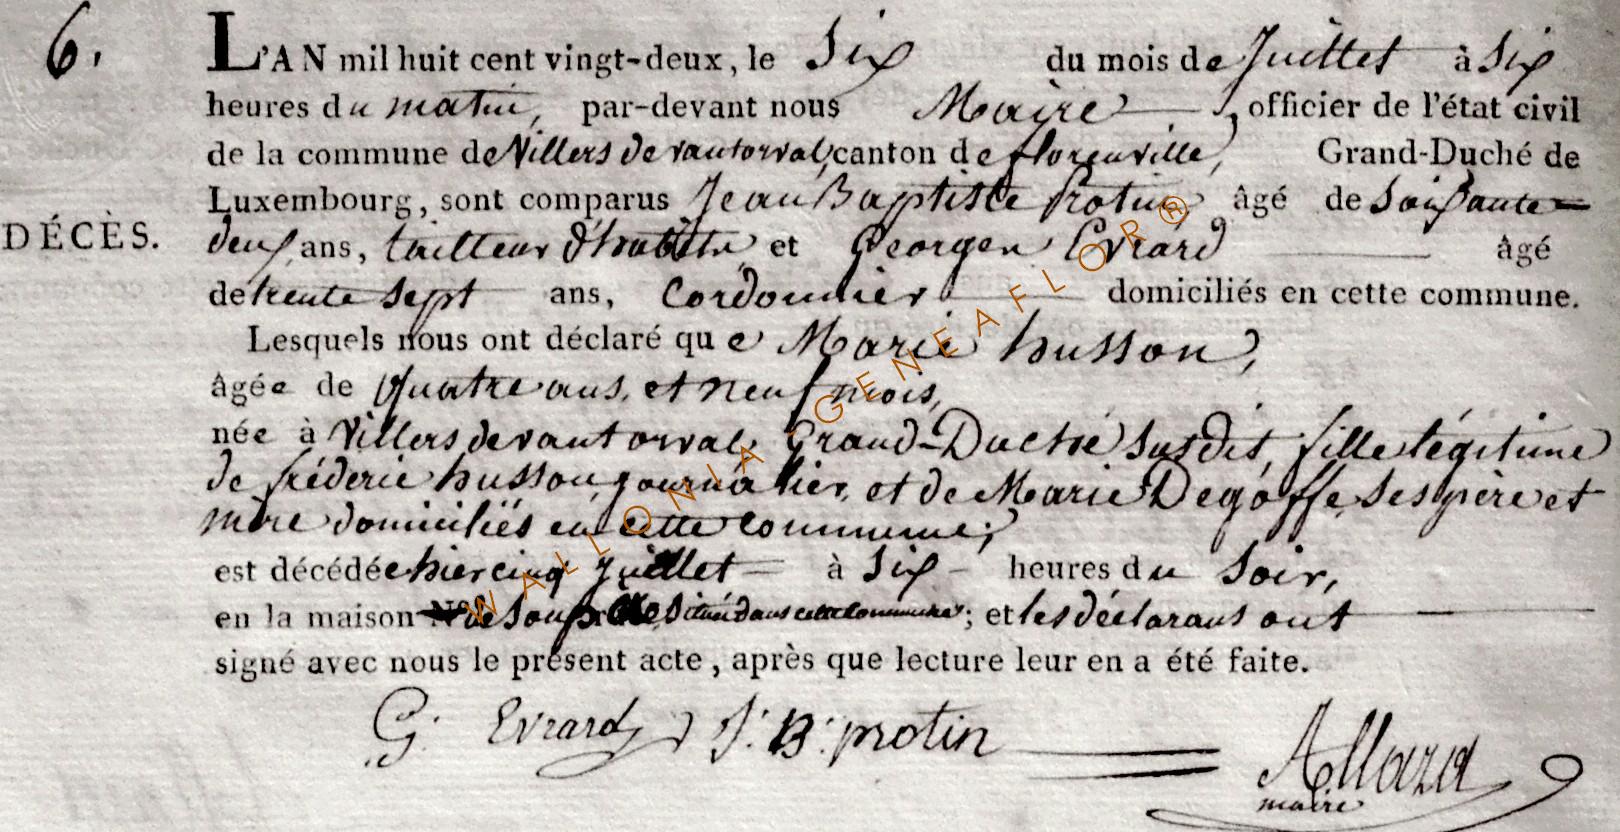 6.
L'AN mil huit cent vingt-deux, le Six du mois de Juillet à Six
heures du matin, par-devant nous Maire, officier de l'état civil
de la commune de Villers devantorval, canton de florenville, Grand-Duché de
Luxembourg, sont comparus Jean Baptiste Protin, âgé de Soixante
DÉCÈS.
deux ans, tailleur d'habits, et Georgen Evrard âgé
de trente sept ans, Cordonnier domiciliés en cette commune.
Lesquels nous ont déclaré que Marie husson,
âgée de quatre ans, et neuf mois,
née à Villers devantorval, Grand-Duché Susdit, fille légitime
de fréderic husson, journalier, et de Marie Degoffe, Ses père et
mère domiciliés en cette commune;
est décédée hier cinq Juillet à Six heures du Soir,
en la maison de Son père Située dans cette Commune; et les déclarans ont
signé avec nous le présent acte, après que lecture leur en a été faite.
G. Evrard J. B. protin
Allard
maire
WALLONIA-GENEAFLOR®